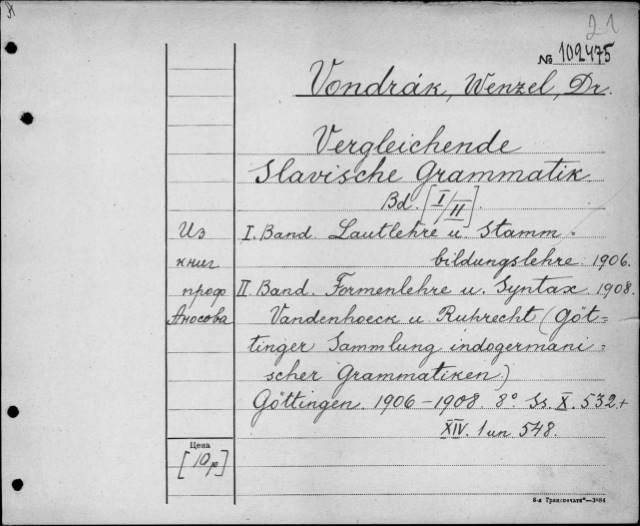 21
№ 102475
Vondrák, Wenzel, Dr.
Vergleichende
Slavische Grammatik.
Bd. [I/II].
Из
книг
проф
Аносова
I. Band. Lautlehre u. Stamm-
bildungslehre. 1906.
II. Band. Formenlehre u. Syntax. 1908.
Vandenhoeck u. Ruhrecht (Göt-
tinger Sammlung indogermani-
scher Grammatiken)
Göttingen. 1906-1908. 8° Ss. X. 532+
XIV. 1 un 548.
Цена
[10р]
8-я „Транспечати“—3984